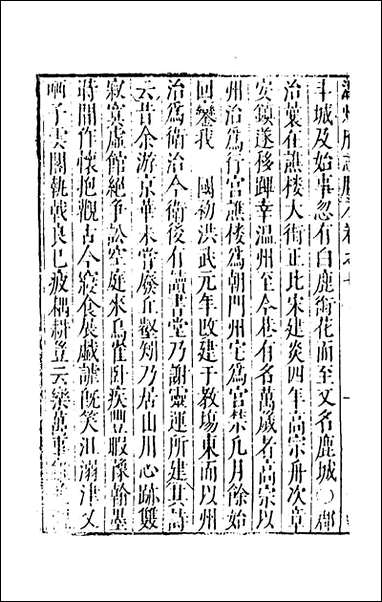 斗城及始事忽有白鹿銜花而至又名鹿城○郡
治舊在譙樓大街正北宋建炎四年高宗舟次章
安鎮遂移蹕幸温州至今巷有名萬歲者高宗以
州治爲行宮譙樓爲朝門州宅爲宮禁凡月餘始
回鑾我 國初洪武元年改建于教場東而以州
治爲衛治今衛後有讀書堂乃謝靈運所建其詩
云昔余游京華未嘗廢丘壑矧乃居山川心跡雙
寂寞虛館絶爭訟空庭來鳥雀卧疾豐暇豫翰墨
時間作懷抱觀古今寢食展戲謔旣笑沮溺津又
哂子雲閣執戟良已疲耦耕登云樂萬事